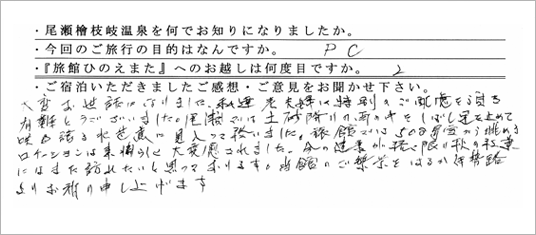 ・尾瀬檜枝岐温泉を何でお知りになりましたか。
・今回のご旅行の目的はなんですか。 PC
・『旅館ひのえまた』へのお越しは何度目ですか。 2
・ご宿泊いただきましたご感想・ご意見をお聞かせ下さい。
大変お世話になりました。私達老夫婦に特別のご配慮を賜り
有難とうございました。尾瀬では土砂降りの雨の中をしばし足を止めて
咲き誇る水芭蕉に見入って参りました。旅館では
ロケーションは素晴らしく大変癒されました。
にはまた訪れたいと思っております。当館のご繁栄をはるか伊勢路
よりお祈り申し上げます